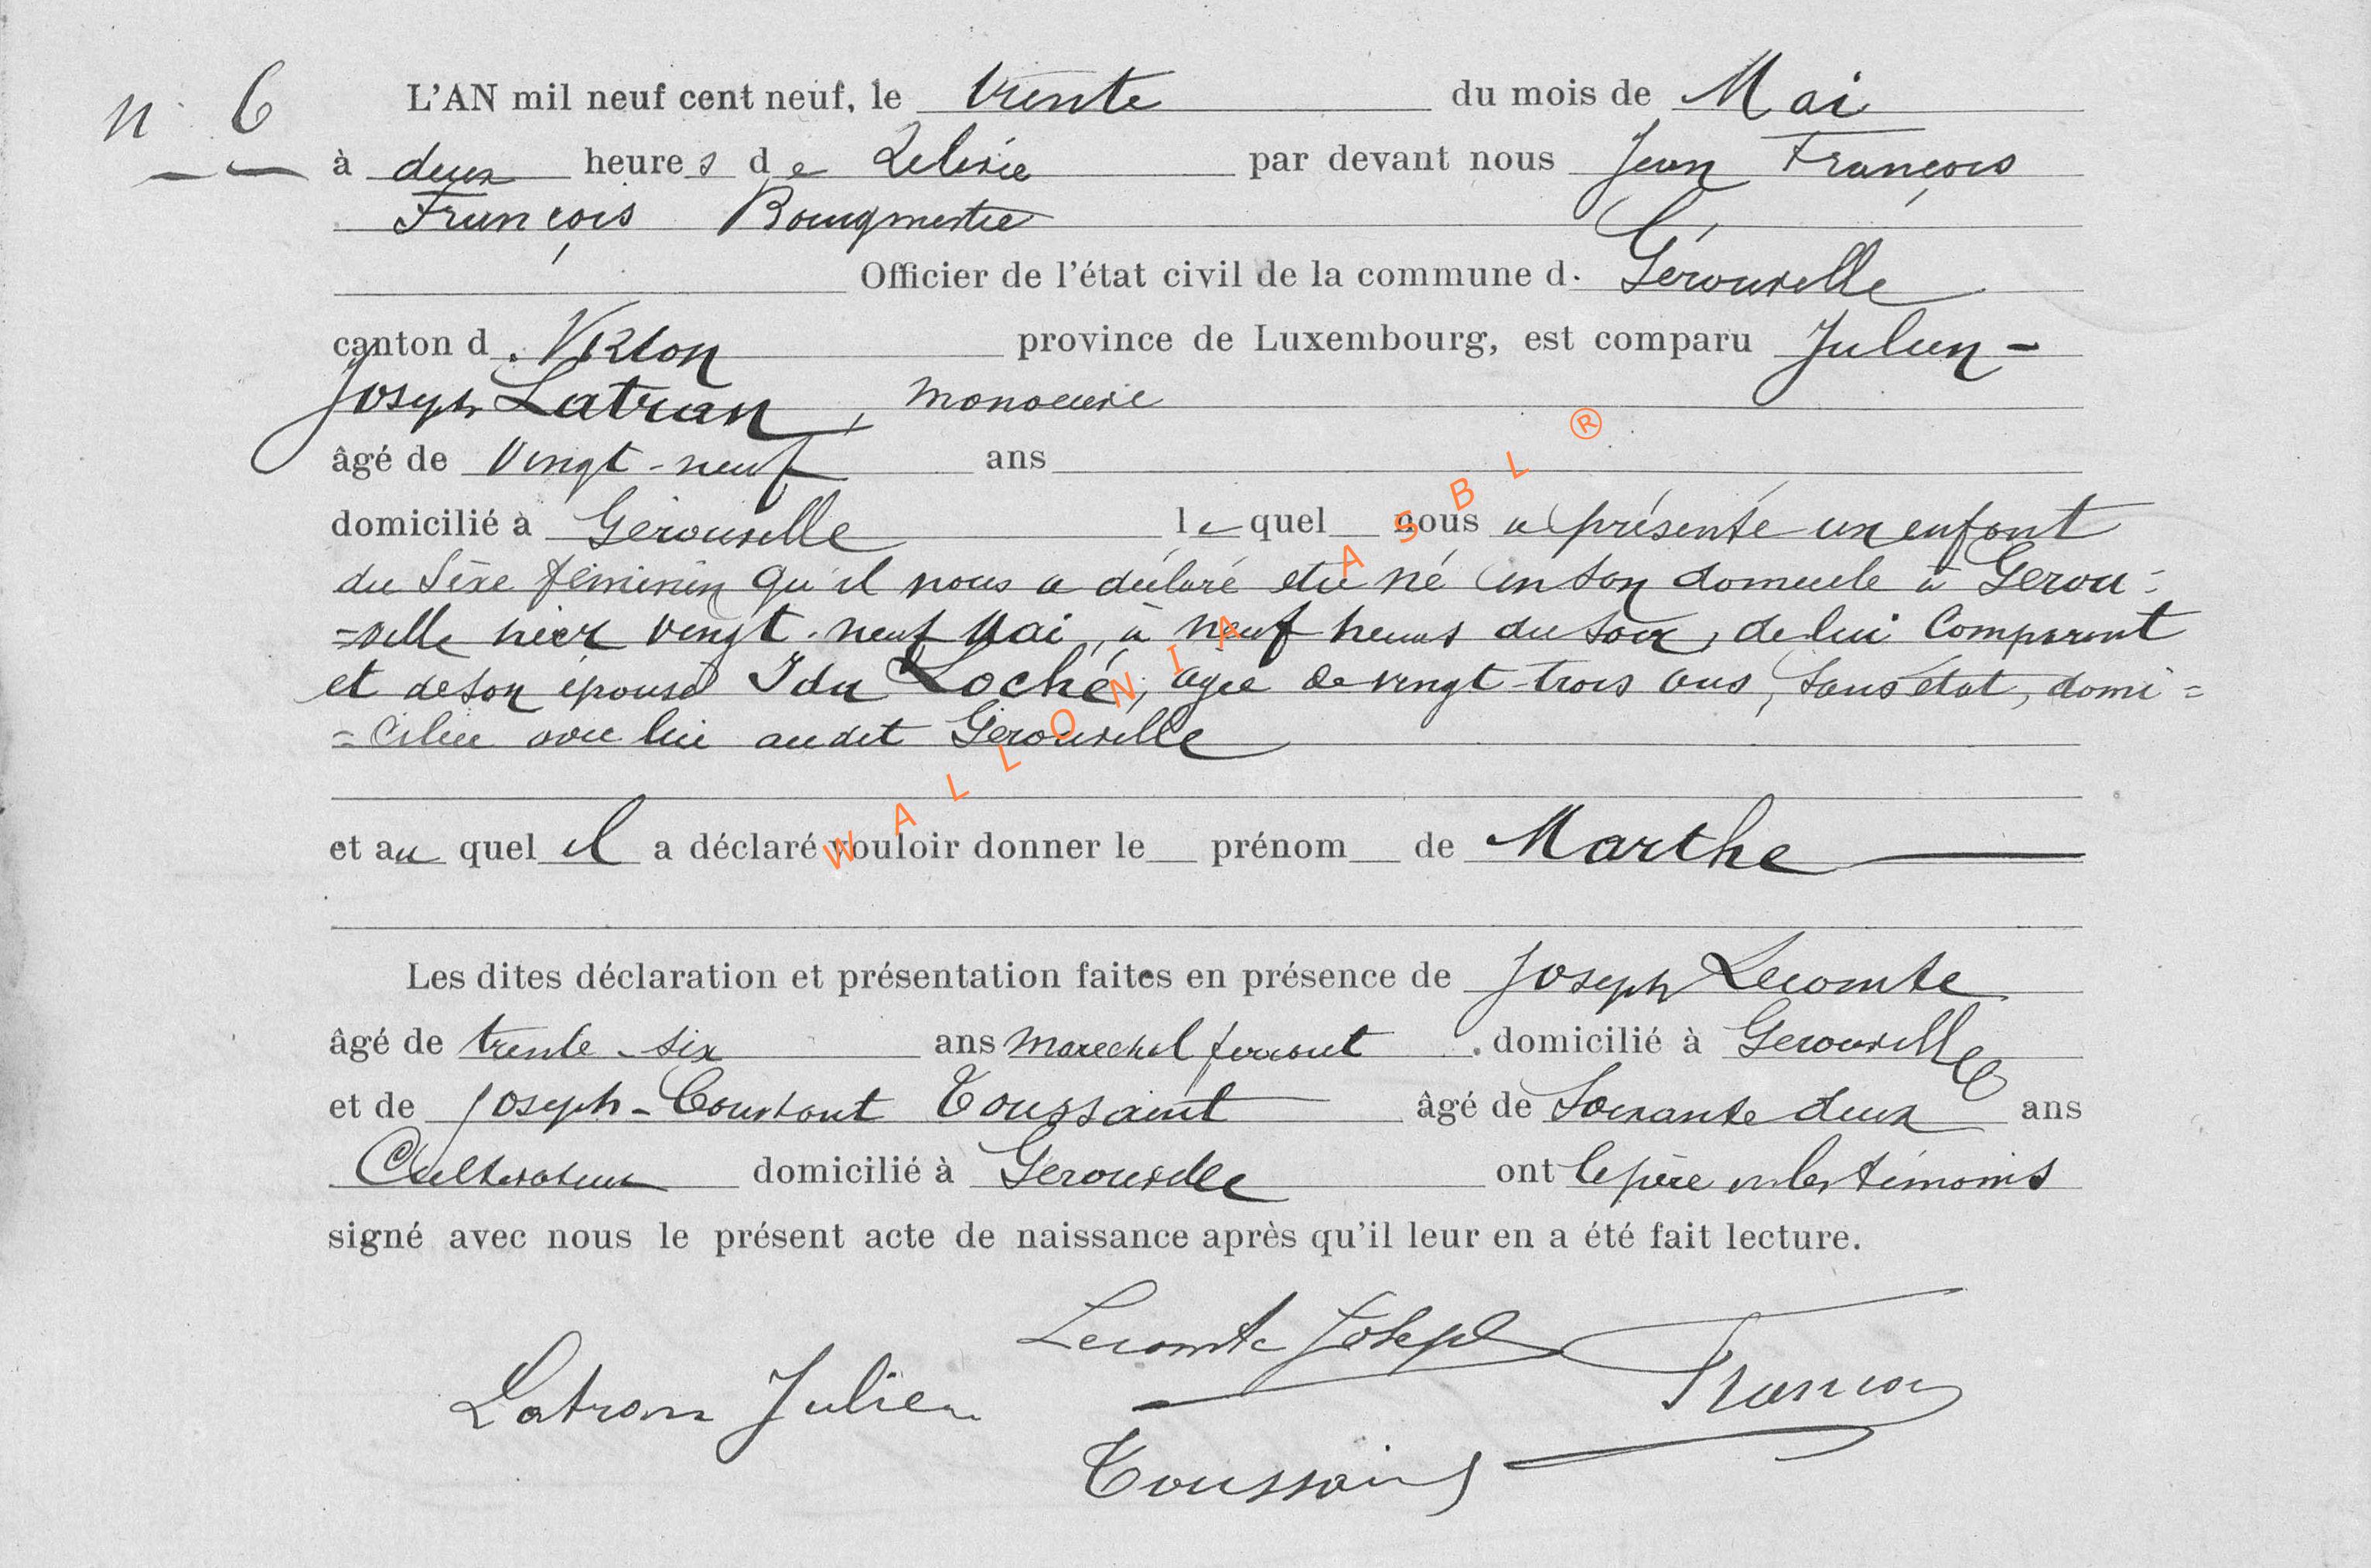 n° 6
L'AN mil neuf cent neuf, le trente du mois de Mai
à deux heures de Relevée par devant nous Jean François
François Bourgmestre
Officier de l'état civil de la commune d. Gérouville
canton d. Virton province de Luxembourg, est comparu Julien-
Joseph Latran, manoeuvre
âgé de vingt-neuf ans
domicilié à Gérouville lequel nous a présenté un enfant
du Sexe féminin qu'il nous a déclaré être né en son domicile à Gérou=
=ville hier vingt-neuf Mai, à neuf heures du soir, de lui Comparant
et de son épouse Ida Loché, agée de vingt-trois ans, Sans état, domi=
=Ciliée avec lui audit Gérouville
et au quel il a déclaré vouloir donner le prénom de Marthe
Les dites déclaration et présentation faites en présence de Joseph Lecomte
âgé de trente-six ans Maréchal ferrant domicilié à Gérouville
et de Joseph-Constant Toussaint âgé de Soixante deux ans
Cultivateur domicilié à Gérouville ont le père et les témoins
signé avec nous le présent acte de naissance après qu'il leur en a été fait lecture.
Lecomte Joseph
Latran Julien François
Toussaint
WALLONIA ASBL ®